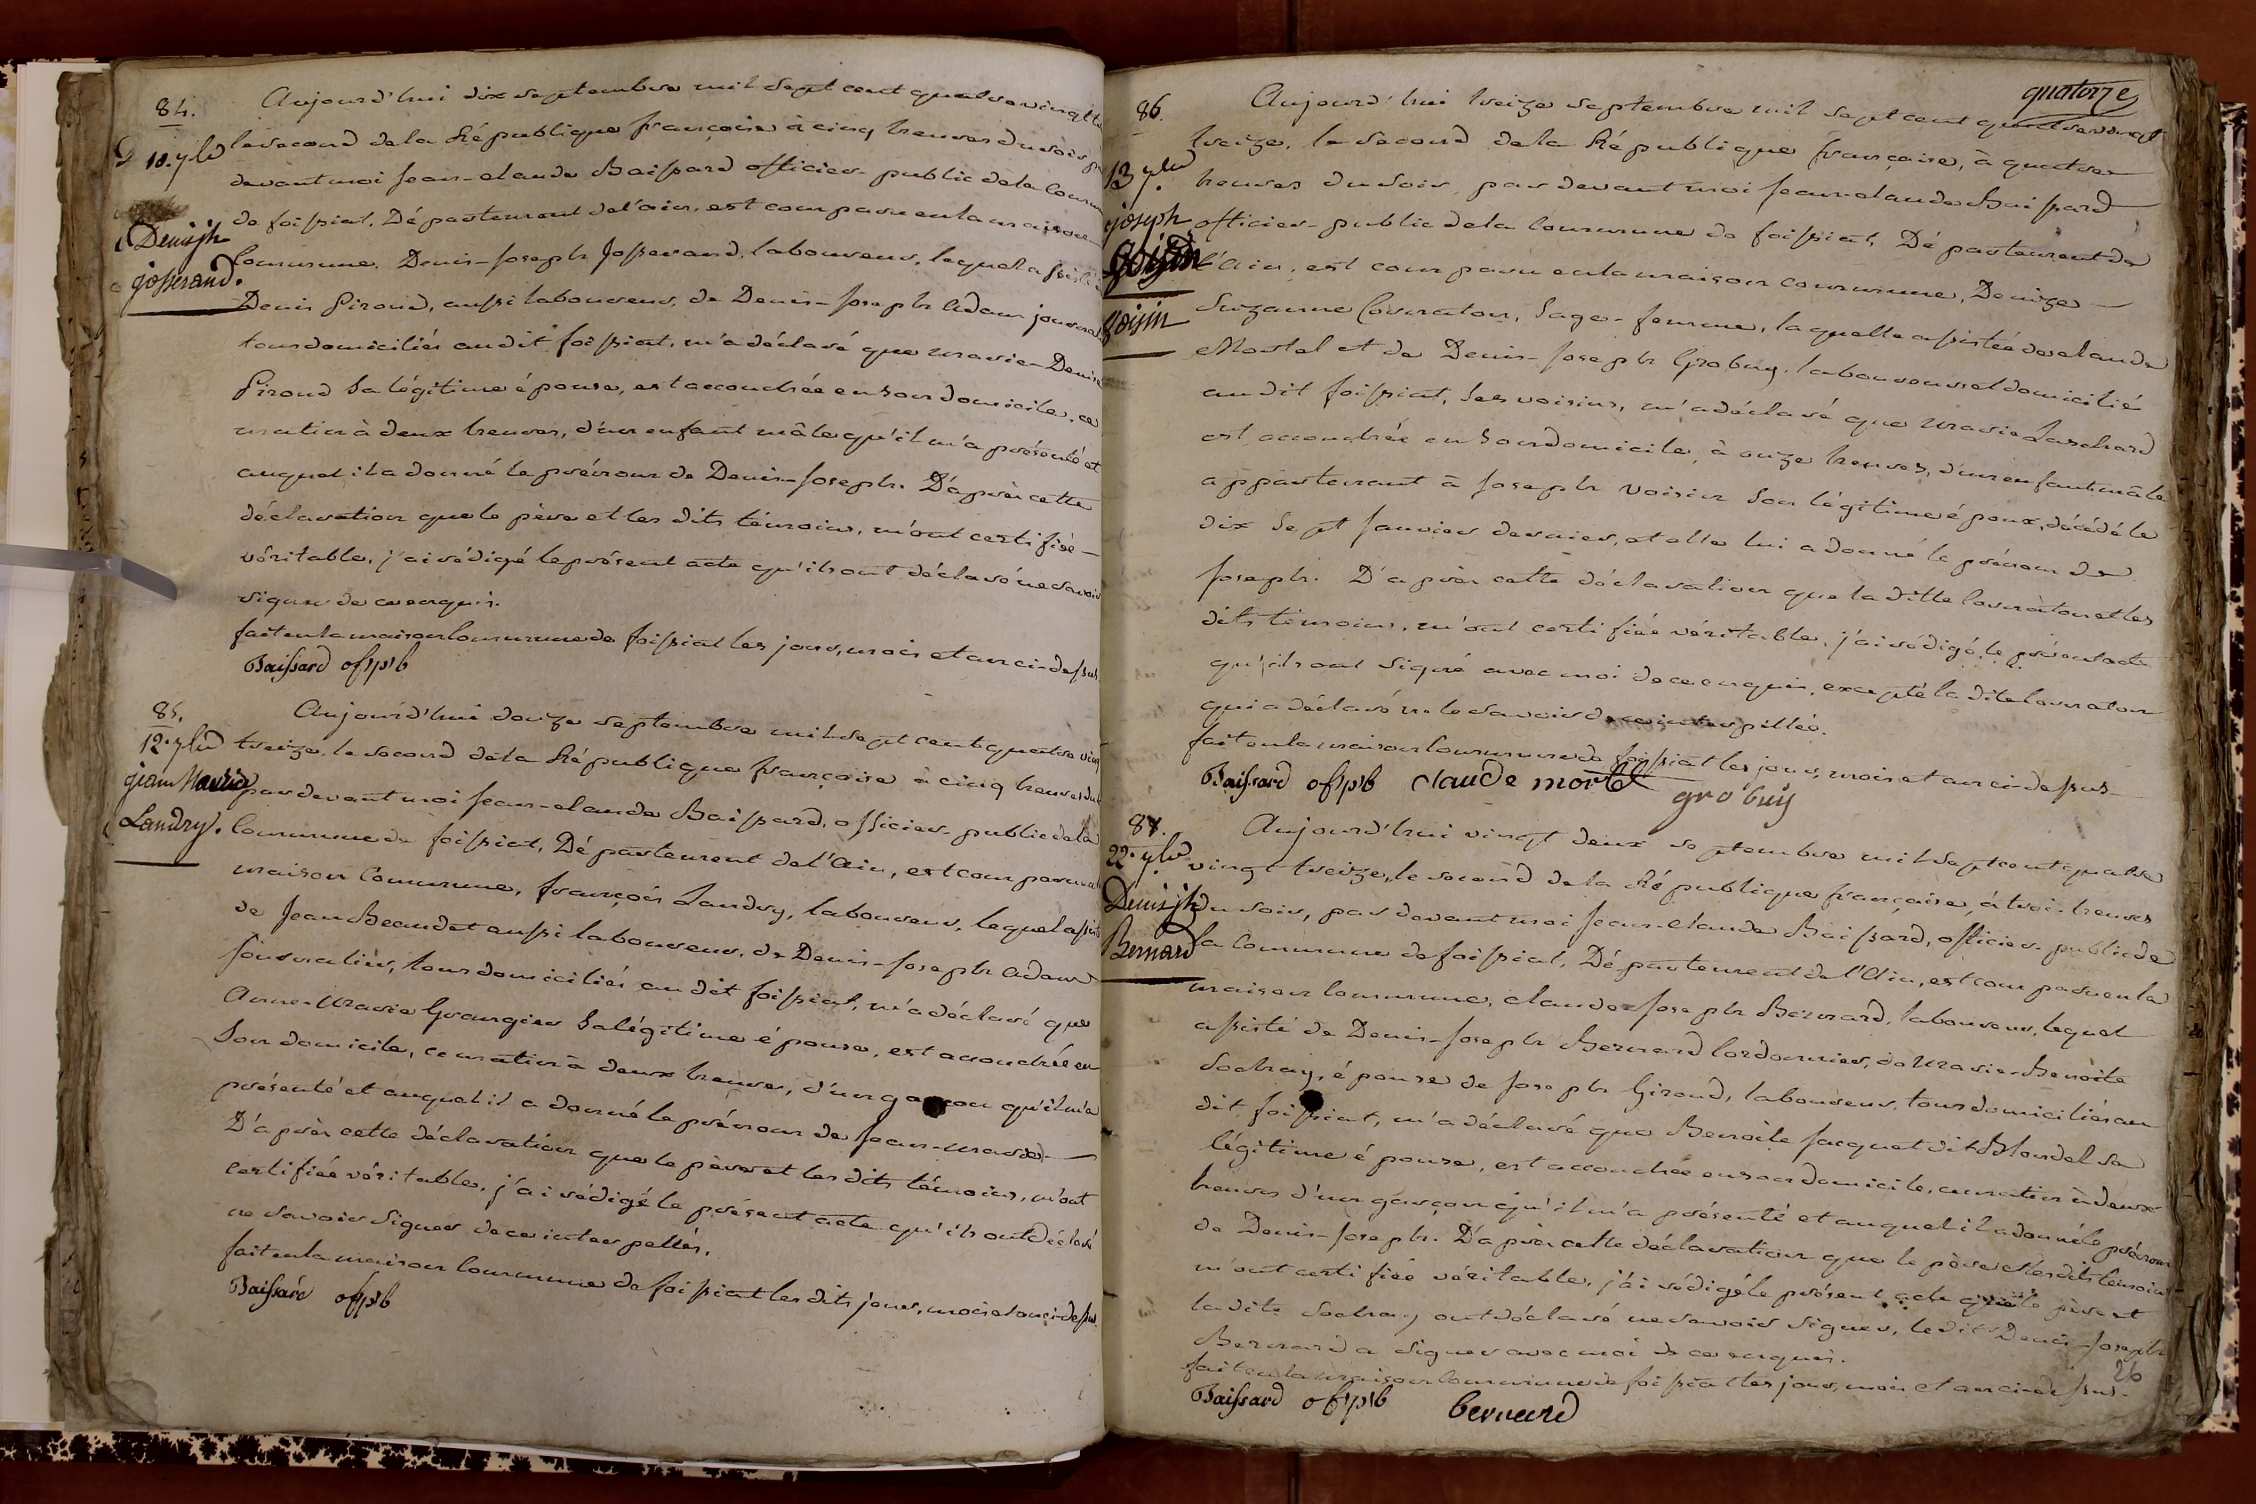 84.
10. 7bre
Denis jh
josserand.
Aujourd'hui dix septembre mil sept cent quatre vingt
le second de la République françoise à cinq heures du soir par
devant moi Jean-claude Baissard officier public de la Commu
de foissiat, Département de l'ain, est comparu en la maison
Commune, Denis-Joseph Josserand, laboureur, lequel assisté
Denis Piroud, aussi laboureur, de Denis-Joseph Adam journal
tous domiciliés audit foissiat, m'a déclaré que marie-Denise
Piroud sa légitime épouse, est accouchée en son domicile, ce
matin à deux heures, d'un enfant mâle qu'il m'a présenté et
auquel il a donné le prénom de Denis-Joseph. D'après cette
déclaration que le père et les dits témoins, m'ont certifiée
véritable, j'ai rédigé le présent acte qu'ils ont déclaré ne savoir
signer de ce enquis.
fait en la maison Commune de foissiat les jour, mois et an ci-dessus
Baissard of. pb
85.
12. 7bre
jean Marie
Landry.
Aujourd'hui douze septembre mil sept cent quatre vingt
treize, le second de la République françoise à cinq heures du
par devant moi Jean-claude Baissard, officier public de la
Commune de foissiat, Département de l'Ain, est comparu en la
maison Commune, françois Landry, laboureur, lequel assisté
de Jean Beaudet aussi laboureur, de Denis-Joseph Adam
Journalier, tous domiciliés au dit foissiat, m'a déclaré que
Anne-Marie Grangier sa légitime épouse, est accouchée en
son domicile, ce matin à deux heures, d'un garçon qu'il m'a
présenté et auquel il a donné le prénom de Jean-marie
D'après cette déclaration que le père et les dits témoins, m'ont
certifiée véritable, j'ai rédigé le présent acte qu'ils ont déclaré
ne savoir signer de ce interpellés.
fait en la maison Commune de foissiat les dits jour, mois et an ci-dessus
Baissard of. pb
quatorze
86.
13 7bre
joseph
voisin
Aujourd'hui treize septembre mil sept cent quatre vingt
treize, le second de la République françoise, à quatre
heures du soir, par devant moi Jean-claude Baissard
officier public de la Commune de foissiat, Département de
l'Ain, est comparu en la maison commune, Denize
Suzanne Couraton, Sage-femme, laquelle assistée de claude
Mortel et de Denis-Joseph Grobuy, laboureurs et domicilié
au dit foissiat, ses voisins, m'a déclaré que marie
est accouchée en son domicile, à onze heures, d'un enfant mâle
appartenant à Joseph Voisin son légitime époux, décédé le
dix sept Janvier dernier, et elle lui a donné le prénom de
Joseph. D'après cette déclaration que la ditte Couraton et les
dits témoins, m'ont certifiée véritable, j'ai rédigé le présent acte
qu'ils ont signé avec moi de ce enquis, excepté la dite Couraton
qui a déclaré ne le savoir de ce interpellée.
fait en la maison Commune de foissiat les jour, mois et an ci-dessus
Baissard of. pb claude mortel
grobuy
87.
22. 7bre
Denis jh
Bernard
Aujourd'hui vingt deux septembre mil sept cent quatre
vingt-treize, le second de la République françoise, à trois heures
du soir, par devant moi Jean-claude Baissard, officier public de
la Commune de foissiat, Département de l'Ain, est comparu en la
maison Commune, claude-Joseph Bernard, laboureur, lequel
assisté de Denis-Joseph Bernard Cordonnier, de marie-Benoite
Sochay, épouse de Joseph Giroud, laboureur, tous domiciliés au
dit foissiat, m'a déclaré que Benoite Jacquet dit Blondel sa
légitime épouse, est accouchée en son domicile, ce matin à deux
heures d'un garçon qu'il m'a présenté et auquel il a donné le prénom
de Denis-Joseph. D'après cette déclaration que le père et les dits témoins
m'ont certifiée véritable, j'ai rédigé le présent acte que le père et
la dite Sochay ont déclaré ne savoir signer, le dit Denis-Joseph
Bernard a signer avec moi de ce enquis.
fait en la maison Commune de foissiat les jour, mois et an ci-dessus.
26
Baissard of. pb bernard